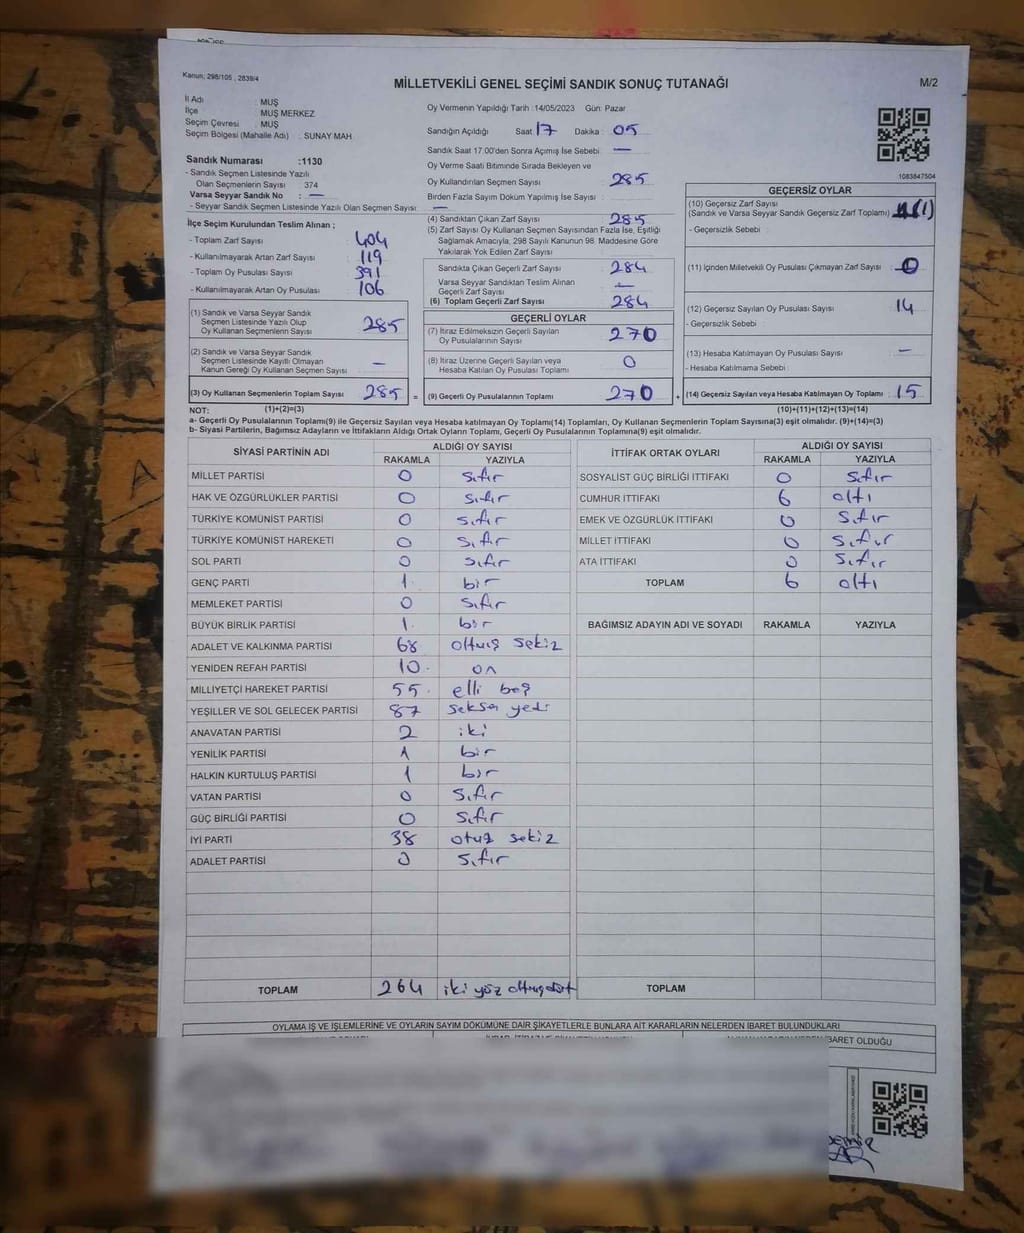 Kanun; 298/105 , 2839/4
MİLLETVEKİLİ GENEL SEÇİMİ SANDIK SONUÇ TUTANAĞI
M/2
İl Adı : MUŞ
İlçe : MUŞ MERKEZ
Seçim Çevresi : MUŞ
Seçim Bölgesi (Mahalle Adı) : SUNAY MAH
Sandık Numarası :1130
- Sandık Seçmen Listesinde Yazılı
Olan Seçmenlerin Sayısı : 374
Varsa Seyyar Sandık No : —
- Seyyar Sandık Seçmen Listesinde Yazılı Olan Seçmen Sayısı : —
İlçe Seçim Kurulundan Teslim Alınan ;
- Toplam Zarf Sayısı : 404
- Kullanılmayarak Artan Zarf Sayısı : 119
- Toplam Oy Pusulası Sayısı : 391
- Kullanılmayarak Artan Oy Pusulası : 106
(1) Sandık ve Varsa Seyyar Sandık
Seçmen Listesinde Yazılı Olup
Oy Kullanan Seçmenlerin Sayısı : 285
(2) Sandık ve Varsa Seyyar Sandık
Seçmen Listesinde Kayıtlı Olmayan
Kanun Gereği Oy Kullanan Seçmen Sayısı : —
(3) Oy Kullanan Seçmenlerin Toplam Sayısı : 285 =
Oy Vermenin Yapıldığı Tarih :14/05/2023 Gün: Pazar
Sandığın Açıldığı Saat 17 Dakika : 05
Sandık Saat 17:00'den Sonra Açılmış İse Sebebi : —
Oy Verme Saati Bitiminde Sırada Bekleyen ve
Oy Kullandırılan Seçmen Sayısı : 285
Birden Fazla Sayım Döküm Yapılmış İse Sayısı :
(4) Sandıktan Çıkan Zarf Sayısı : 285
(5) Zarf Sayısı Oy Kullanan Seçmen Sayısından Fazla İse, Eşitliği
Sağlamak Amacıyla, 298 Sayılı Kanunun 98. Maddesine Göre
Yakılarak Yok Edilen Zarf Sayısı :
Sandıkta Çıkan Geçerli Zarf Sayısı : 284
Varsa Seyyar Sandıktan Teslim Alınan
Geçerli Zarf Sayısı : —
(6) Toplam Geçerli Zarf Sayısı : 284
GEÇERLİ OYLAR
(7) İtiraz Edilmeksizin Geçerli Sayılan
Oy Pusulasının Sayısı : 270
(8) İtiraz Üzerine Geçerli Sayılan veya
Hesaba Katılan Oy Pusulası Toplamı : 0
(9) Geçerli Oy Pusulalarının Toplamı : 270 +
1083847504
GEÇERSİZ OYLAR
(10) Geçersiz Zarf Sayısı
(Sandık ve Varsa Seyyar Sandık Geçersiz Zarf Toplamı) : (1)
- Geçersizlik Sebebi :
(11) İçinden Milletvekili Oy Pusulası Çıkmayan Zarf Sayısı : 0
(12) Geçersiz Sayılan Oy Pusulası Sayısı : 14
- Geçersizlik Sebebi :
(13) Hesaba Katılmayan Oy Pusulası Sayısı : —
- Hesaba Katılmama Sebebi :
(14) Geçersiz Sayılan veya Hesaba Katılmayan Oy Toplamı : 15
NOT: (1)+(2)=(3) (10)+(11)+(12)+(13)=(14)
a- Geçerli Oy Pusulalarının Toplamı(9) ile Geçersiz Sayılan veya Hesaba katılmayan Oy Toplamı(14) Toplamları, Oy Kullanan Seçmenlerin Toplam Sayısına(3) eşit olmalıdır. (9)+(14)=(3)
b- Siyasi Partilerin, Bağımsız Adayların ve İttifakların Aldığı Ortak Oyların Toplamı, Geçerli Oy Pusulalarının Toplamına(9) eşit olmalıdır.
SİYASİ PARTİNİN ADI ALDIĞI OY SAYISI
RAKAMLA YAZIYLA
MİLLET PARTİSİ 0 sıfır
HAK VE ÖZGÜRLÜKLER PARTİSİ 0 sıfır
TÜRKİYE KOMÜNİST PARTİSİ 0 sıfır
TÜRKİYE KOMÜNİST HAREKETİ 0 sıfır
SOL PARTİ 0 sıfır
GENÇ PARTİ 1. bir
MEMLEKET PARTİSİ 0 sıfır
BÜYÜK BİRLİK PARTİSİ 1. bir
ADALET VE KALKINMA PARTİSİ 68 altmış sekiz
YENİDEN REFAH PARTİSİ 10. on
MİLLİYETÇİ HAREKET PARTİSİ 55. elli beş
YEŞİLLER VE SOL GELECEK PARTİSİ 87 seksen yedi
ANAVATAN PARTİSİ 2 iki
YENİLİK PARTİSİ 1 bir
HALKIN KURTULUŞ PARTİSİ 1 bir
VATAN PARTİSİ 0 sıfır
GÜÇ BİRLİĞİ PARTİSİ 0 sıfır
İYİ PARTİ 38 otuz sekiz
ADALET PARTİSİ 0 sıfır
TOPLAM 264 iki yüz altmış dört
İTTİFAK ORTAK OYLARI ALDIĞI OY SAYISI
RAKAMLA YAZIYLA
SOSYALİST GÜÇ BİRLİĞİ İTTİFAKI 0 sıfır
CUMHUR İTTİFAKI 6 altı
EMEK VE ÖZGÜRLÜK İTTİFAKI 0 sıfır
MİLLET İTTİFAKI 0 sıfır
ATA İTTİFAKI 0 sıfır
TOPLAM 6 altı
BAĞIMSIZ ADAYIN ADI VE SOYADI RAKAMLA YAZIYLA
TOPLAM
OYLAMA İŞ VE İŞLEMLERİNE VE OYLARIN SAYIM DÖKÜMÜNE DAİR ŞİKAYETLERLE BUNLARA AİT KARARLARIN NELERDEN İBARET BULUNDUKLARI
İBARET OLDUĞU